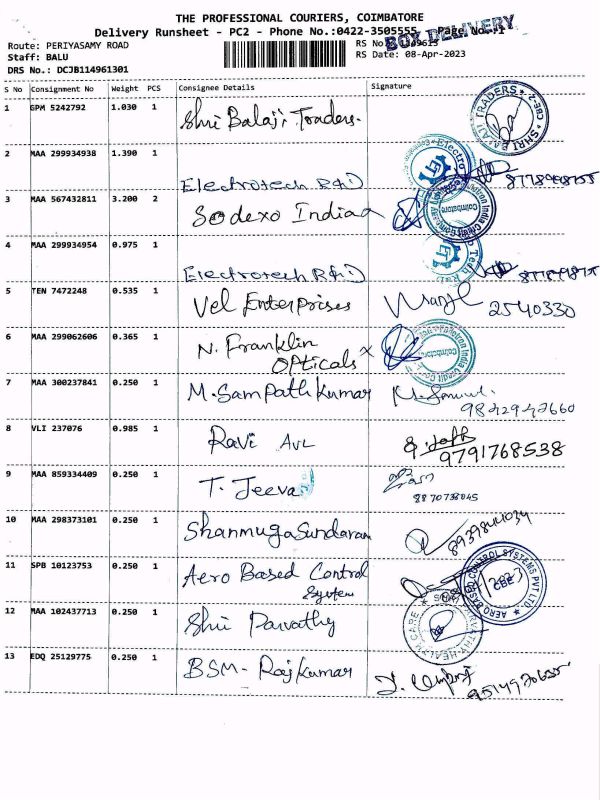 THE PROFESSIONAL COURIERS, COIMBATORE
Delivery Runsheet - PC2 - Phone No.:0422-3505555 Page No.:1
BOX DELIVERY
Route: PERIYASAMY ROAD RS No
Staff: BALU RS Date: 08-Apr-2023
DRS No.: DCJB114961301
S No Consignment No Weight PCS Consignee Details Signature
1 GPM 5242792 1.030 1 Shri Balaji Traders.
SHRI BALAJI TRADERS CBE-2
2 MAA 299934938 1.390 1 Electrotech R&D
3 MAA 567432811 3.200 2 Sodexo India
4 MAA 299934954 0.975 1 Electrotech R&D
5 TEN 7472248 0.535 1 Vel Enterprises 2540330
6 MAA 299062606 0.365 1 N. Franklin Opticals x
7 MAA 300237841 0.250 1 M. Sampath Kumar
9842942660
8 VLI 237076 0.985 1 Ravi AVL
9791768538
9 MAA 859334409 0.250 1 T. Jeeva
8870738045
10 MAA 298373101 0.250 1 Shanmuga Sundaram
8939844034
11 SPB 10123753 0.250 1 Aero Based Control System
AERO BASED CONTROL SYSTEMS PVT LTD CBE
12 MAA 102437713 0.250 1 Shri Parvathy
13 EDQ 25129775 0.250 1 BSM - Rajkumar